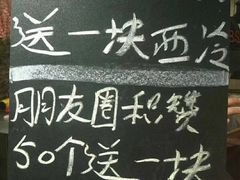 送一块西冷
朋友圈积赞
50个送一块